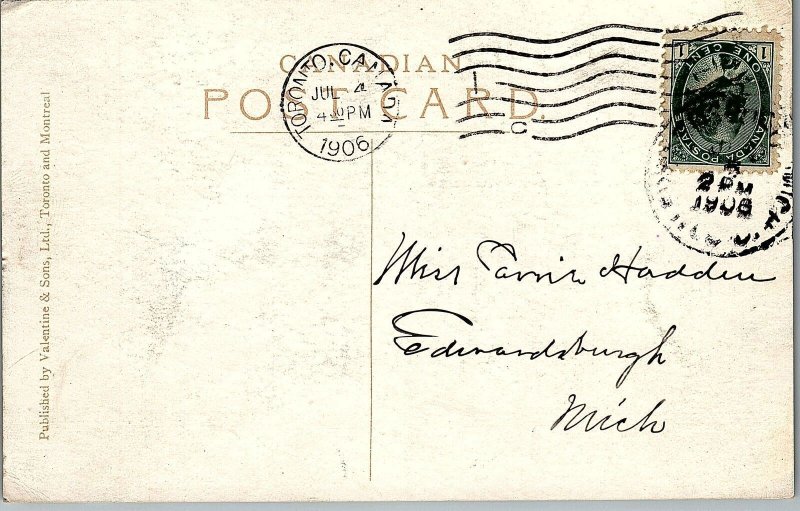 CANADIAN
POST CARD.
TORONTO, CANADA
JUL 4
4 30 PM
1906
C
1 ONE CENT 1
CANADA POSTAGE
2 PM
1906
MICH.
Miss Carrie Hadden
Edwardsburgh
Mich
Published by Valentine & Sons, Ltd., Toronto and Montreal